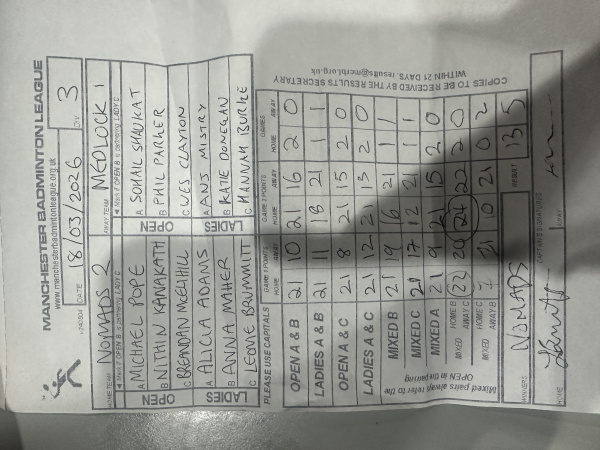 MANCHESTER BADMINTON LEAGUE
www.manchesterbadmintonleague.org.uk
DATE 18/03/2026 DIV 3
HOME TEAM NOMADS 2 AWAY TEAM MEDLOCK 1
OPEN A MICHAEL POPE OPEN A SOHAIL SHAUKAT
B NITHIN KANAKATH B PHIL PARKER
C BRENDAN McELHILL C WES CLAYTON
LADIES A ALICIA ADAMS LADIES A ANJ MISTRY
B ANNA MAHER B KATIE DONEGAN
C LEONIE BRUMMITT C HANNAH BURKE
PLEASE USE CAPITALS
GAME 1 POINTS GAME 2 POINTS GAMES
HOME AWAY HOME AWAY HOME AWAY
OPEN A & B 21 10 21 16 2 0
LADIES A & B 21 11 18 21 1 1
OPEN A & C 21 8 21 15 2 0
LADIES A & C 21 12 21 13 2 0
MIXED B 21 19 16 21 1 1
MIXED C 21 17 12 21 1 1
MIXED A 21 9 21 15 2 0
MIXED HOME B AWAY C 22 20 24 22 2 0
MIXED HOME C AWAY B 21 10 21 0 2
Mixed pairs always refer to the
OPEN in the pairing
WINNERS NOMADS RESULT 13 5
CAPTAIN'S SIGNATURES
HOME AWAY
COPIES TO BE RECEIVED BY THE RESULTS SECRETARY
WITHIN 21 DAYS. results@mcrbl.org.uk